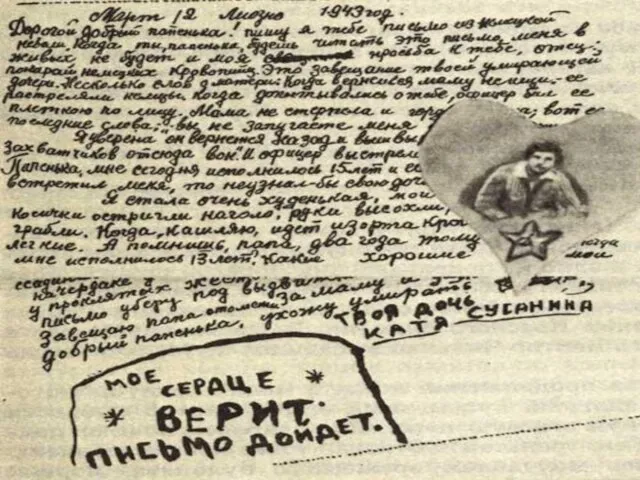 Март, 12 Лиозно 1943 год.
Дорогой добрый папенька! пишу я тебе письмо из немецкой
неволи. Когда ты, папенька, будешь читать это письмо, меня в
живых не будет и моя просьба к тебе, отец:
покарай немецких кровопийц. Это завещание твоей умирающей
дочери. Несколько слов о матери. Когда вернешься маму не ищи. ее
расстреляли немцы. Когда допытывались о тебе, офицер бил ее
плеткою по лицу. Мама не стерпела и гордо вот ее
последние слова: "вы не запугаете меня
Я уверена он вернется назад и вышвы
захватчиков отсюда вон". И офицер выстрел
Папенька, мне сегодня исполнилось 15 лет и ес
встретил меня, то неузнал-бы свою доч
Я стала очень худенькая, мои
косички остригли наголо, руки высохли,
грабли. Когда кашляю, идет изорта кро
легкие. А помнишь, папа, два года тому когда
мне исполнилось 13 лет? Какие хорошие мои
на чердаке
у проклятых жест
письмо уберу под
Завещаю папа отомсти: за маму и
добрый папенька, ухожу умирать
ТВОЯ ДОЧЬ
КАТЯ СУСАНИНА
МОЕ
СЕРДЦЕ
ВЕРИТ.
ПИСЬМО ДОЙДЕТ.